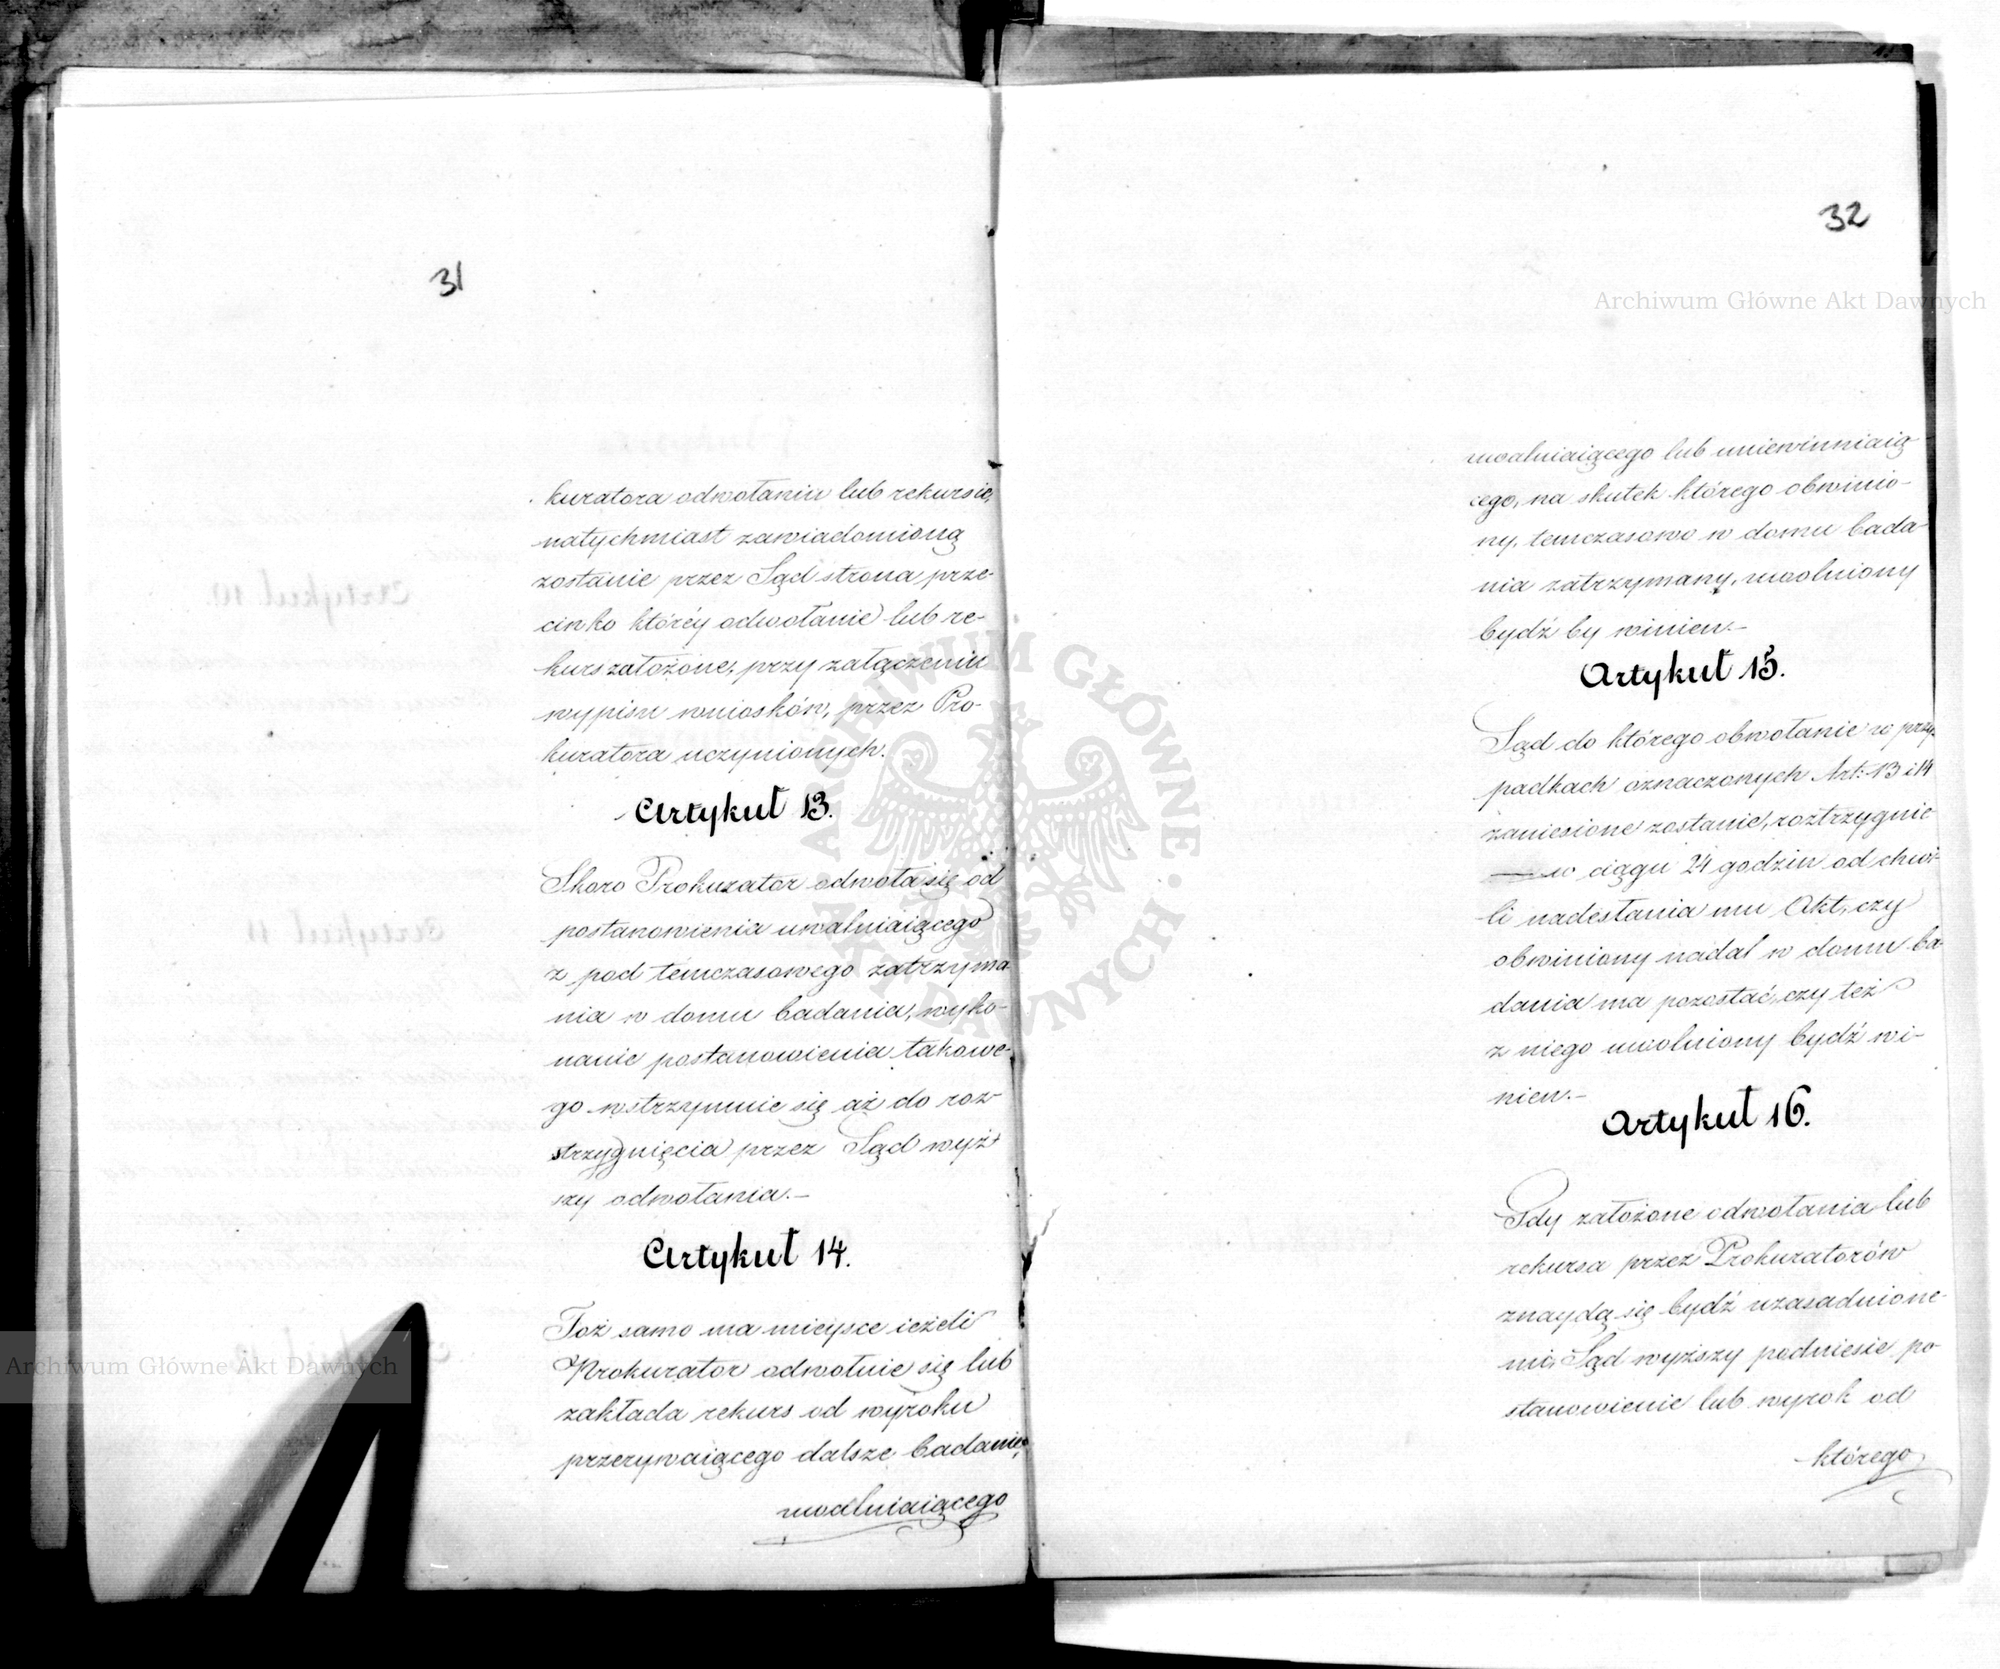 31
kuratora odwołaniu lub rekursie,
natychmiast zawiadomioną
zostanie przez Sąd strona prze-
ciwko któréy odwołanie lub re-
kurs założone, przy załączeniu
wypisu wniosków, przez Pro-
kuratora uczynionych.
Artykuł 13.
Skoro Prokurator odwoła się od
postanowienia uwalniaiącego
z pod temczasowego zatrzyma
nia w domu badania, wyko-
nanie postanowienia takowe-
go wstrzymuie się aż do roz-
strzygnięcia przez Sąd wyż-
szy odwołania.-
Artykuł 14.
Toż samo ma mieysce ieżeli
Prokurator odwołuie się lub
zakłada rekurs od wyroku
przerywaiącego dalsze badanie,
uwalniaiącego
32
uwalniaiącego lub uniewinniaią-
cego, na skutek którego obwinio-
ny, temczasowo w domu bada-
nia zatrzymany, uwolniony
bydź by winien.-
Artykuł 15.
Sąd do którego obwołanie w przy
padkach oznaczonych Art: 13 i 14
zaniesione zostanie, roztrzygnie
w ciągu 24 godzin od chwi-
li nadesłania mu Akt, czy
obwiniony nadal w domu ba-
dania ma pozostać, czy też
z niego uwolniony bydź wi-
nien.-
Artykuł 16.
Gdy założone odwołania lub
rekursa przez Prokuratorów
znaydą się bydź uzasadnione-
mi, Sąd wyższy podniesie po-
stanowienie lub wyrok od
którego
Archiwum Główne Akt Dawnych
Archiwum Główne Akt Dawnych
ARCHIWUM GŁÓWNE AKT DAWNYCH